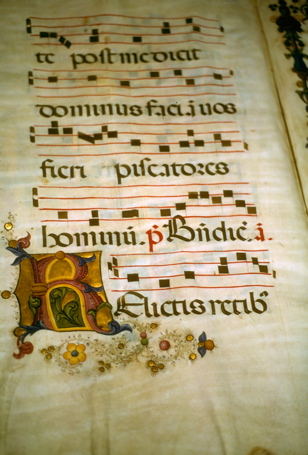 te post me dicit
dominus faci. a vos
fieri piscatores
hominū. p̄ Bn̄dic̄. i.
Elictis retib9